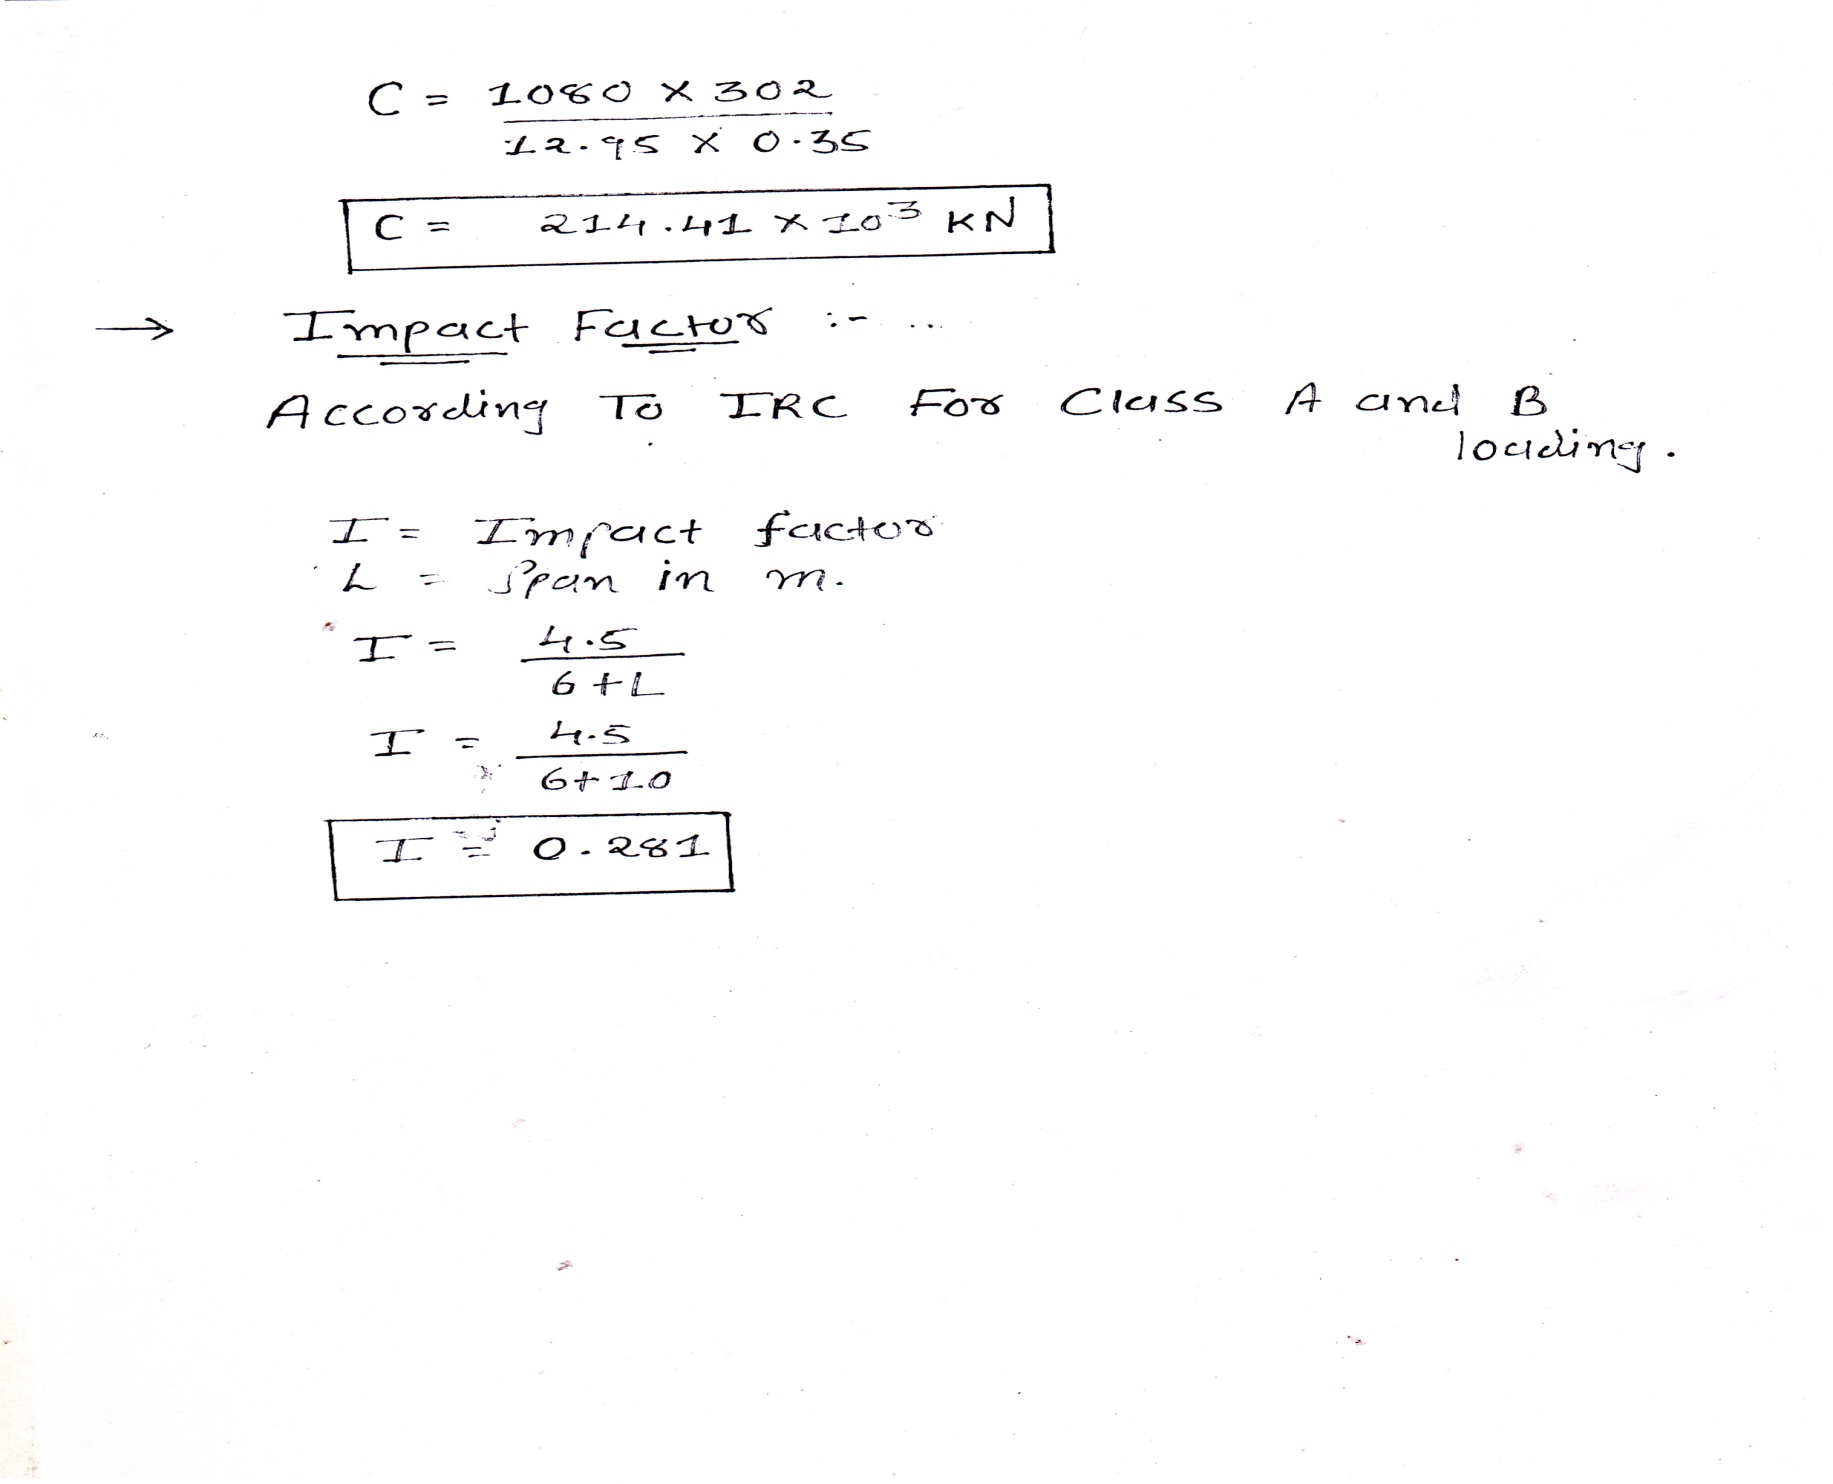 C = 1080 × 302
12.95 × 0.35
C = 214.41 × 10³ KN
→ Impact Factor :- ...
According To IRC For Class A and B
loading.
I = Impact factor
L = Span in m.
I = 4.5
6 + L
I = 4.5
6 + 10
I = 0.281